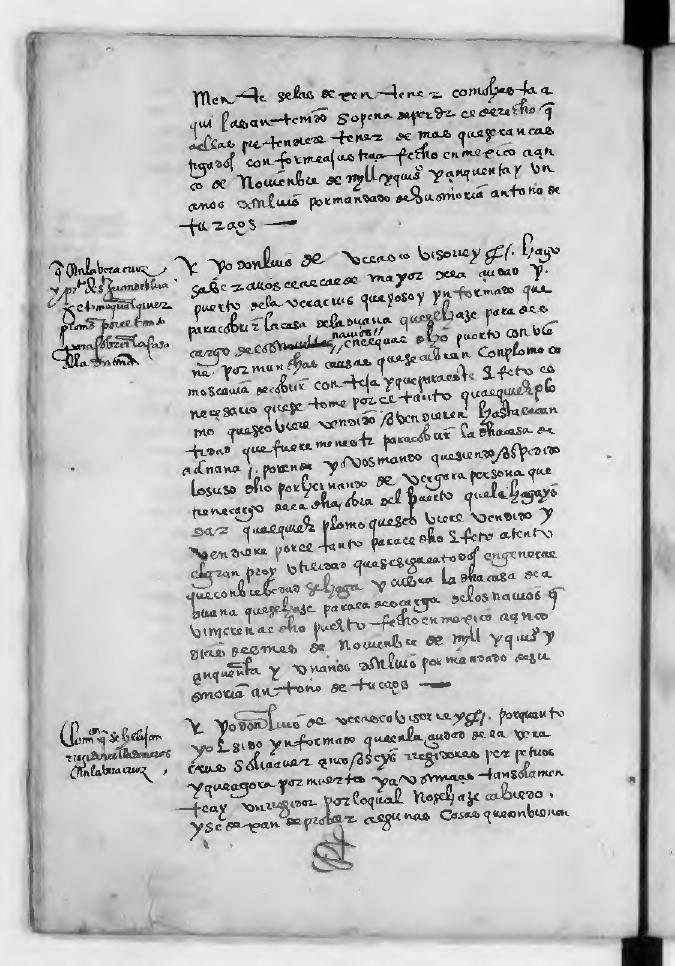 mente selas dexen tener como hasta a
qui las an tenido so pena de perder el derecho q̃
a ellas pretendiere tener de mas que seran cas
tigados conforme a justicia fecho en mexico a çin
co de noviembre de mill y quiºs y çinquenta y un
anos don luis por mandado de su señoria antonio de
turçios
q̃ en la bera cruz
y pto de s juan de lua
se tome qualquier
plomo por el tanto
para cobrir la casa
de la duana
Yo don luis de velasco visorrey etc. hago
saber a vos el alcalde mayor de la çiudad y
puerto de la veracruz que yo soy ynformado que
para cobrir la casa de la duana que se haze para des
cargo de los navios en el que dho puerto convie
ne por muchas causas que se cubran con plomo co
mo se avia de cobrir con teja y que para este efeto es
neçesario que se tome por el tanto qualquier plo
mo que se oviere vendido o se vendieren hasta en can
tidad que fuere menester para cobrir la dha casa de
aduana / por ende yo vos mando que siendo os pedido
lo suso dho por hernando de vergara persona que
tiene cargo de la dha obra del puerto que le hagays
dar qualquier plomo que se oviere vendido y
vendiere por el tanto para el dho efeto atento
el gran pro y utilidad que se sigue a todos en general
que con brebedad se haga y cubra la dha casa de a
duana que se haze para la descarga de los navios q̃
vinieren al dho puerto fecho en mexico a çinco
dias del mes de noviembre de mill y quiºs y
çinquenta y un anos don luis por mandado de su
señoria antonio de turçios
Comon q̃ se helijan
regidores cadañeros
en la bera cruz
Yo don luis de velasco visorrey etc. por quanto
yo e sido ynformado que en la çiudad de la vera
cruz solia aver çinco o seys regidores perpetuos
y que agora por muertes y avsençias tan sola men
te ay un regidor por lo qual no se haze cabildo
y se dexan de probeer algunas cosas que conbienen